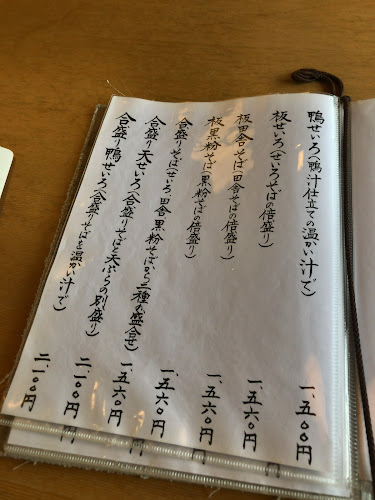 鴨せいろ(鴨汁仕立ての温かい汁で) 一、五〇〇円
板せいろ(せいろそばの倍盛り) 一、五六〇円
板田舎そば(田舎そばの倍盛り) 一、五六〇円
板黒粉そば(黒粉そばの倍盛り) 一、五六〇円
合盛りそば(せいろ、田舎、黒粉そばから二種を盛合せ) 一、五六〇円
合盛り天せいろ(合盛りそばと天ぷらの別盛り) 二、一〇〇円
合盛り鴨せいろ(合盛りそばを温かい汁で) 二、一〇〇円